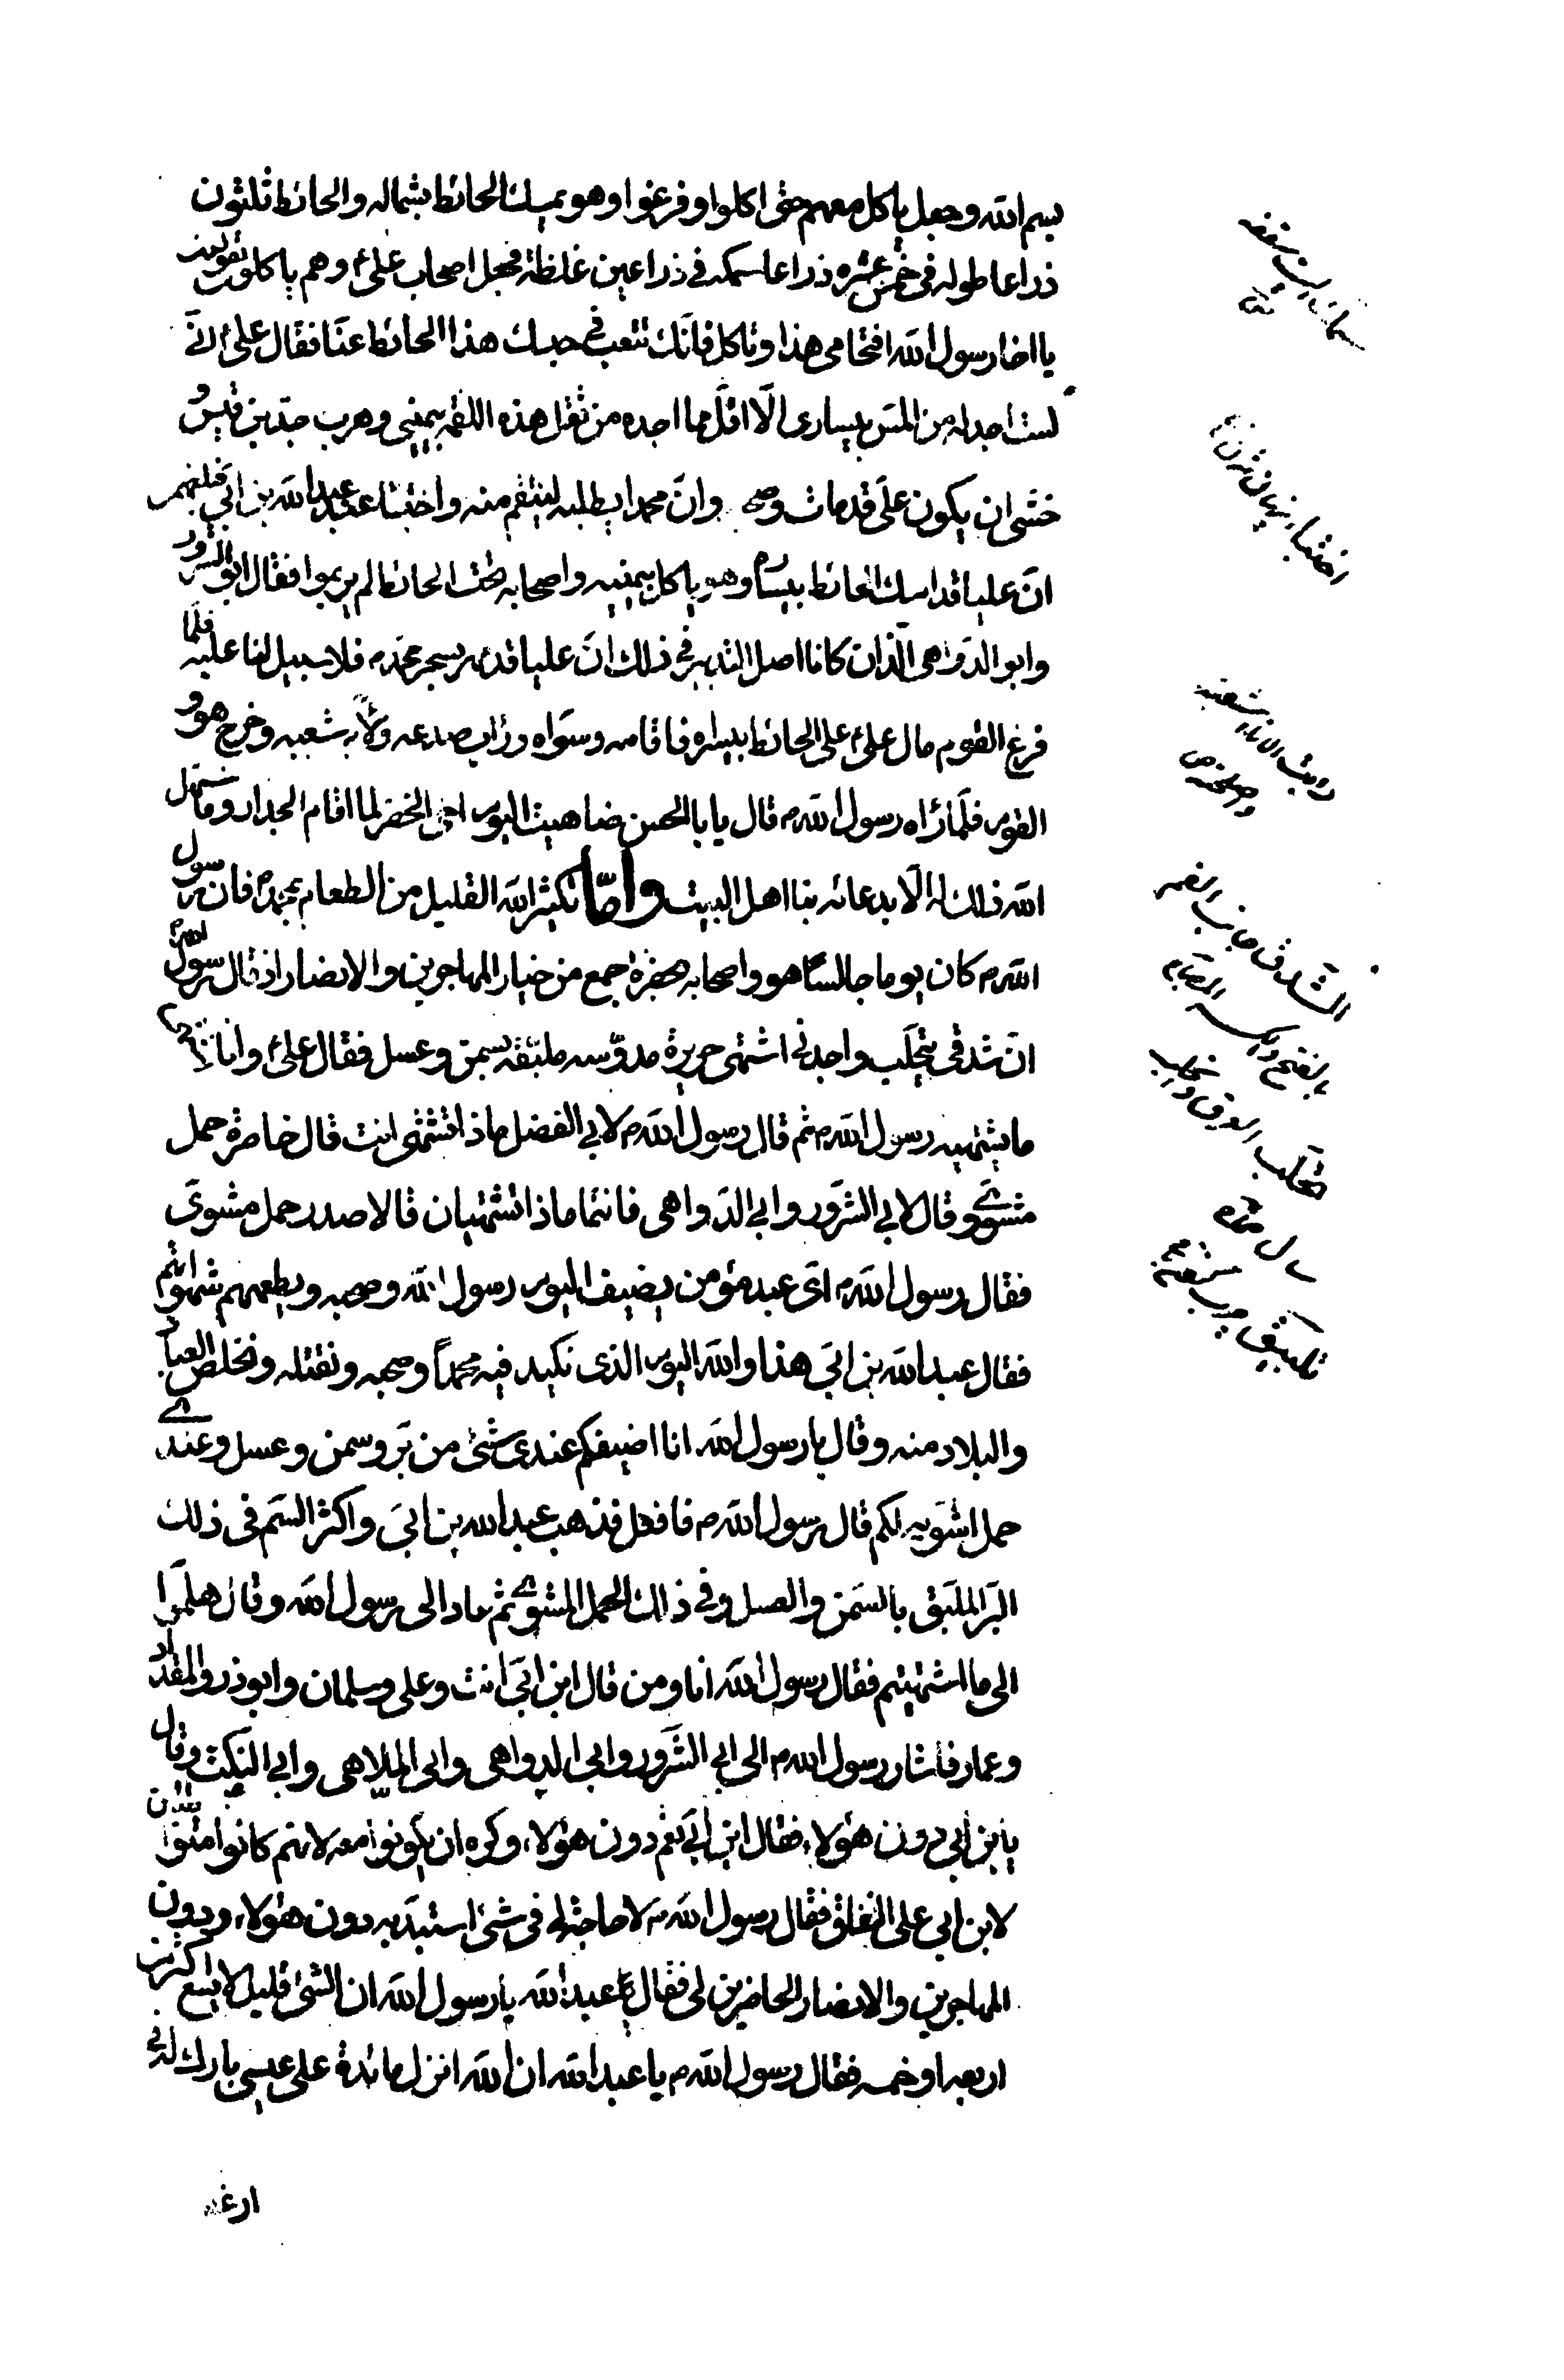 بسم الله وجعل ياكل معهم حتى اكلوا وفرغوا وهو يمسك الحائط بشماله والحائط ثلثون
ذراعا طوله في خمس عشره ذراعا سمكه في ذراعين غلظة فجعل اصحاب علي وهم ياكلون يقولون
يا اخا رسول الله افتحامى هذا وتاكل فانك تتعب في حبسك هذا الحائط عنا فقال علي اني
لست اجد له من المس بيسارى الا اقل مما اجده من ثقل هذه اللقمه بيمينى وهرب جد بن قيس و
خشى ان يكون على قد مات وصحبه وان محمدا يطلبه لينتقم منه واختبا عند عبد الله بن ابي فبلغهم
ان عليا قد امسك الحائط بيساره وهو ياكل بيمينه واصحابه تحت الحائط لم يريموا فقال ابو الشرور
وابو الدواهى الذان كانا اصل التدبير في ذلك ان عليا قد مهر بسحر محمد م فلا سبيل لنا عليه فلما
فرغ القوم مال علي على الحائط بيساره فاقامه وسواه وراب صدعه ولام شعبه وخرج هو و
القوم فلما راه رسول الله م قال يا با الحسن ضاهيت اليوم اخى الخضر لما اقام الجدار وما سهل
الله ذلك له الا بدعائه بنا اهل البيت واما تكثير الله القليل من الطعام لمحمد م فان رسول
الله م كان يوما جالسا هو واصحابه بحضرة جمع من خيار المهاجرين والانصار اذ قال رسول الله م
ان شدقى يتحلب واجدنى اشتهى حريرة مدوسه ملبقه بسمن وعسل فقال علي وانا اشتهى
ما يشتهيه رسول الله م ثم قال رسول الله م لابي الفضل ماذا تشتهى انت قال خاصرة حمل
مشوي وقال لابي الشرور وابي الدواهى فانتما ماذا تشتهيان قالا صدر حمل مشوى
فقال رسول الله م اى عبد مؤمن يضيف اليوم رسول الله وصحبه ويطعمهم شهواتهم
فقال عبد الله بن ابي هذا والله اليوم الذى نكيد فيه محمدا وصحبه ونقتله ونخلص العباد
والبلاد منه وقال يا رسول الله انا اضيفكم عندى شئ من بر وسمن وعسل وعندي
حمل اشويه لكم قال رسول الله م فافعل فذهب عبد الله بن ابي واكثر السم فى ذلك
البر الملبق بالسمن والعسل وفي ذلك الحمل المشوي ثم عاد الى رسول الله وقال هلموا
الى ما اشتهيتم فقال رسول الله انا ومن قال ابن ابي انت وعلى وسلمان وابو ذر والمقداد
وعمار فاشار رسول الله م الى ابي الشرور وابي الدواهى وابي الملاهى وابي النكث وقال
يابن ابي دون هؤلاء فقال ابن ابي نعم دون هؤلاء وكره ان يكونوا معه لانهم كانوا مواطئين
لابن ابي على النفاق فقال رسول الله م لا حاجة لى فى شئ استبد به دون هؤلاء ودون
المهاجرين والانصار الحاضرين لى فقال عبد الله يا رسول الله ان الشئ قليل لا يسع اكثر من
اربعه او خمسه فقال رسول الله م يا عبد الله ان الله انزل مائدة على عيسى وبارك له في
ارغفه